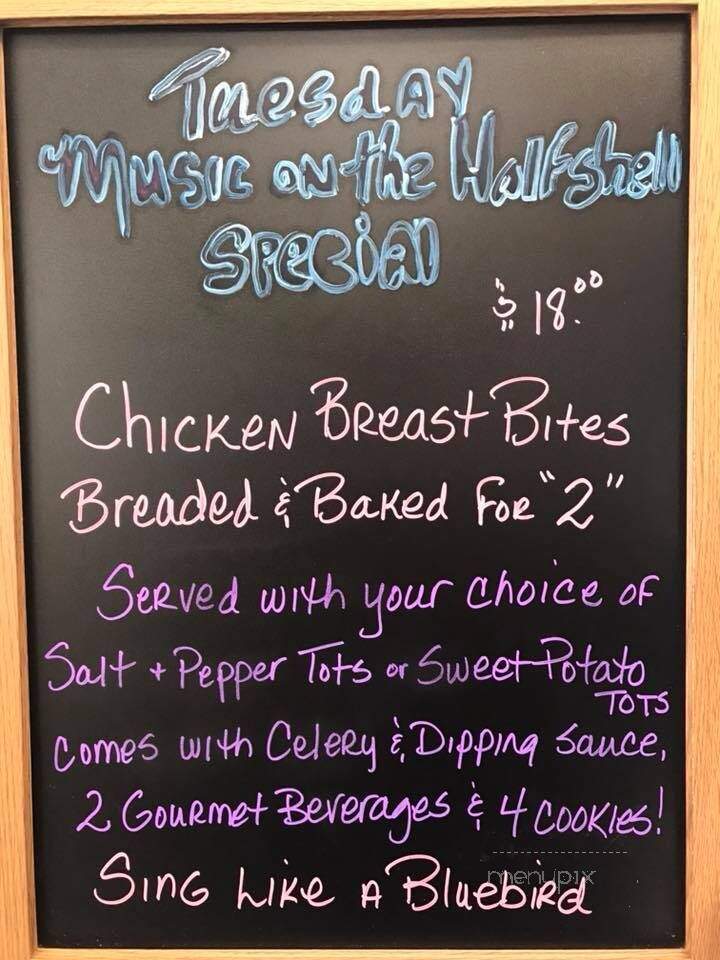 Tuesday
Music on the Halfshell
Special
$18.00
Chicken Breast Bites
Breaded & Baked For "2"
Served with your choice of
Salt + Pepper Tots or Sweet Potato
TOTS
comes with Celery & Dipping Sauce,
2 Gourmet Beverages & 4 cookies!
menupix
Sing Like A Bluebird